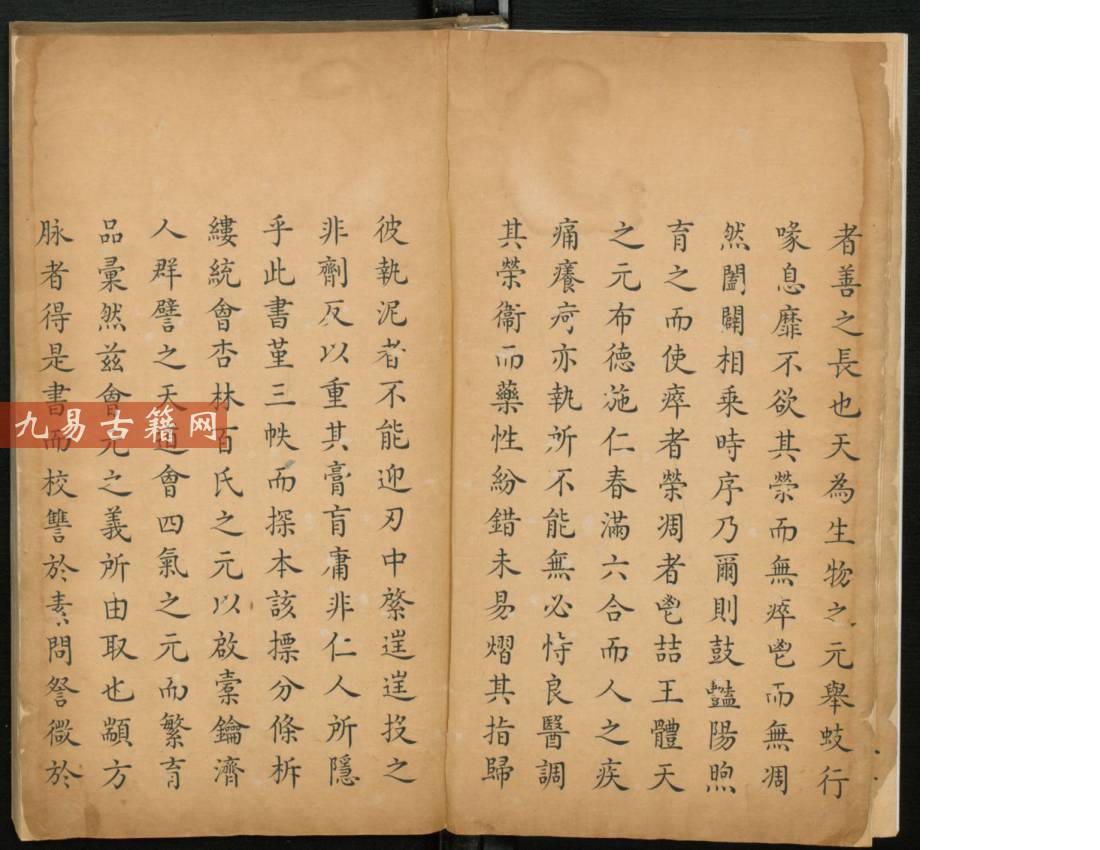 者善之長也天為生物之元舉蚑行
喙息靡不欲其榮而無瘁鬯而無凋
然闔闢相乘時序乃爾則鼓豔陽煦
育之而使瘁者榮凋者鬯喆王體天
之元布德施仁春滿六合而人之疾
痛癢疴亦執所不能無必恃良醫調
其榮衞而藥性紛錯未易熠其指歸
彼執泥者不能迎刃中綮逞逞投之
非劑反以重其膏肓庸非仁人所隱
乎此書堇三帙而探本該摽分條析
縷統會杏林百氏之元以啟橐鑰濟
人群譬之天道會四氣之元而繁育
品彙然茲會元之義所由取也顓方
脉者得是書而校讐於素問詧微於
九易古籍网